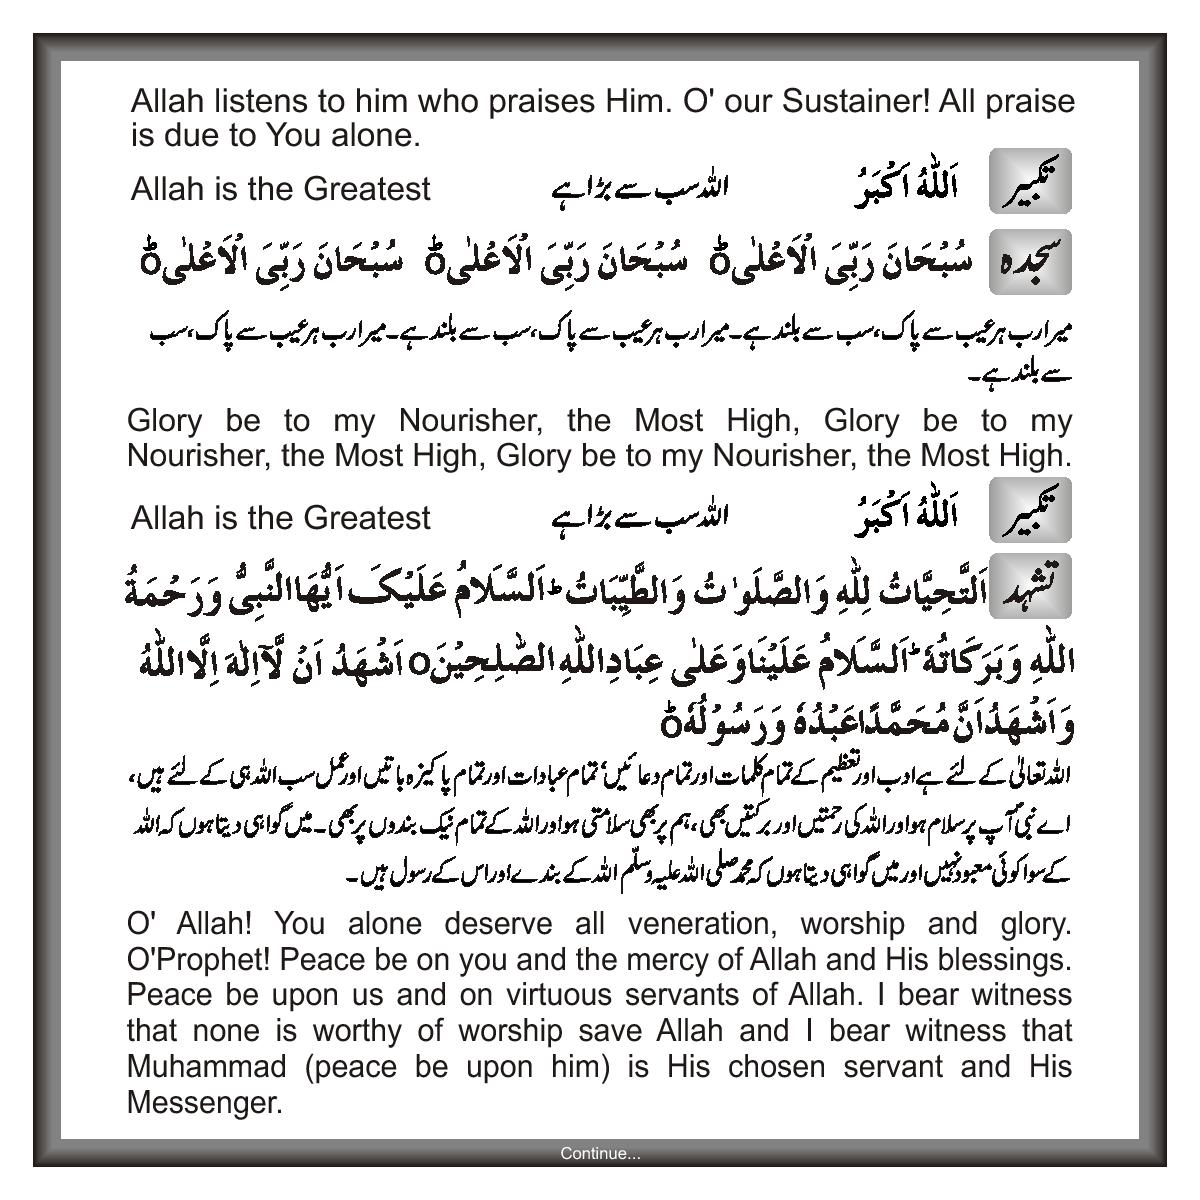 Allah listens to him who praises Him. O' our Sustainer! All praise
is due to You alone.
تکبیر اَللّٰهُ اَکْبَرُ اللہ سب سے بڑا ہے Allah is the Greatest
سجدہ سُبْحَانَ رَبِّیَ الْاَعْلٰی سُبْحَانَ رَبِّیَ الْاَعْلٰی سُبْحَانَ رَبِّیَ الْاَعْلٰی
میرا رب ہر عیب سے پاک، سب سے بلند ہے۔ میرا رب ہر عیب سے پاک، سب سے بلند ہے۔ میرا رب ہر عیب سے پاک، سب
سے بلند ہے۔
Glory be to my Nourisher, the Most High, Glory be to my
Nourisher, the Most High, Glory be to my Nourisher, the Most High.
تکبیر اَللّٰهُ اَکْبَرُ اللہ سب سے بڑا ہے Allah is the Greatest
تشہد اَلتَّحِیَّاتُ لِلّٰهِ وَالصَّلَوٰتُ وَالطَّیِّبَاتُ ؕ اَلسَّلَامُ عَلَیْکَ اَیُّهَا النَّبِیُّ وَرَحْمَةُ
اللّٰهِ وَبَرَکَاتُهٗ ؕ اَلسَّلَامُ عَلَیْنَا وَعَلٰی عِبَادِ اللّٰهِ الصّٰلِحِیْنَ o اَشْهَدُ اَنْ لَّآ اِلٰهَ اِلَّا اللّٰهُ
وَاَشْهَدُ اَنَّ مُحَمَّدًا عَبْدُهٗ وَرَسُوْلُهٗ
اللہ تعالیٰ کے لئے ہے ادب اور تعظیم کے تمام کلمات اور تمام دعائیں، تمام عبادات اور تمام پاکیزہ باتیں اور عمل سب اللہ ہی کے لئے ہیں،
اے نبی آپ پر سلام ہو اور اللہ کی رحمتیں اور برکتیں بھی، ہم پر بھی سلامتی ہو اور اللہ کے تمام نیک بندوں پر بھی۔ میں گواہی دیتا ہوں کہ اللہ
کے سوا کوئی معبود نہیں اور میں گواہی دیتا ہوں کہ محمد صلی اللہ علیہ وسلّم اللہ کے بندے اور اس کے رسول ہیں۔
O' Allah! You alone deserve all veneration, worship and glory.
O'Prophet! Peace be on you and the mercy of Allah and His blessings.
Peace be upon us and on virtuous servants of Allah. I bear witness
that none is worthy of worship save Allah and I bear witness that
Muhammad (peace be upon him) is His chosen servant and His
Messenger.
Continue...